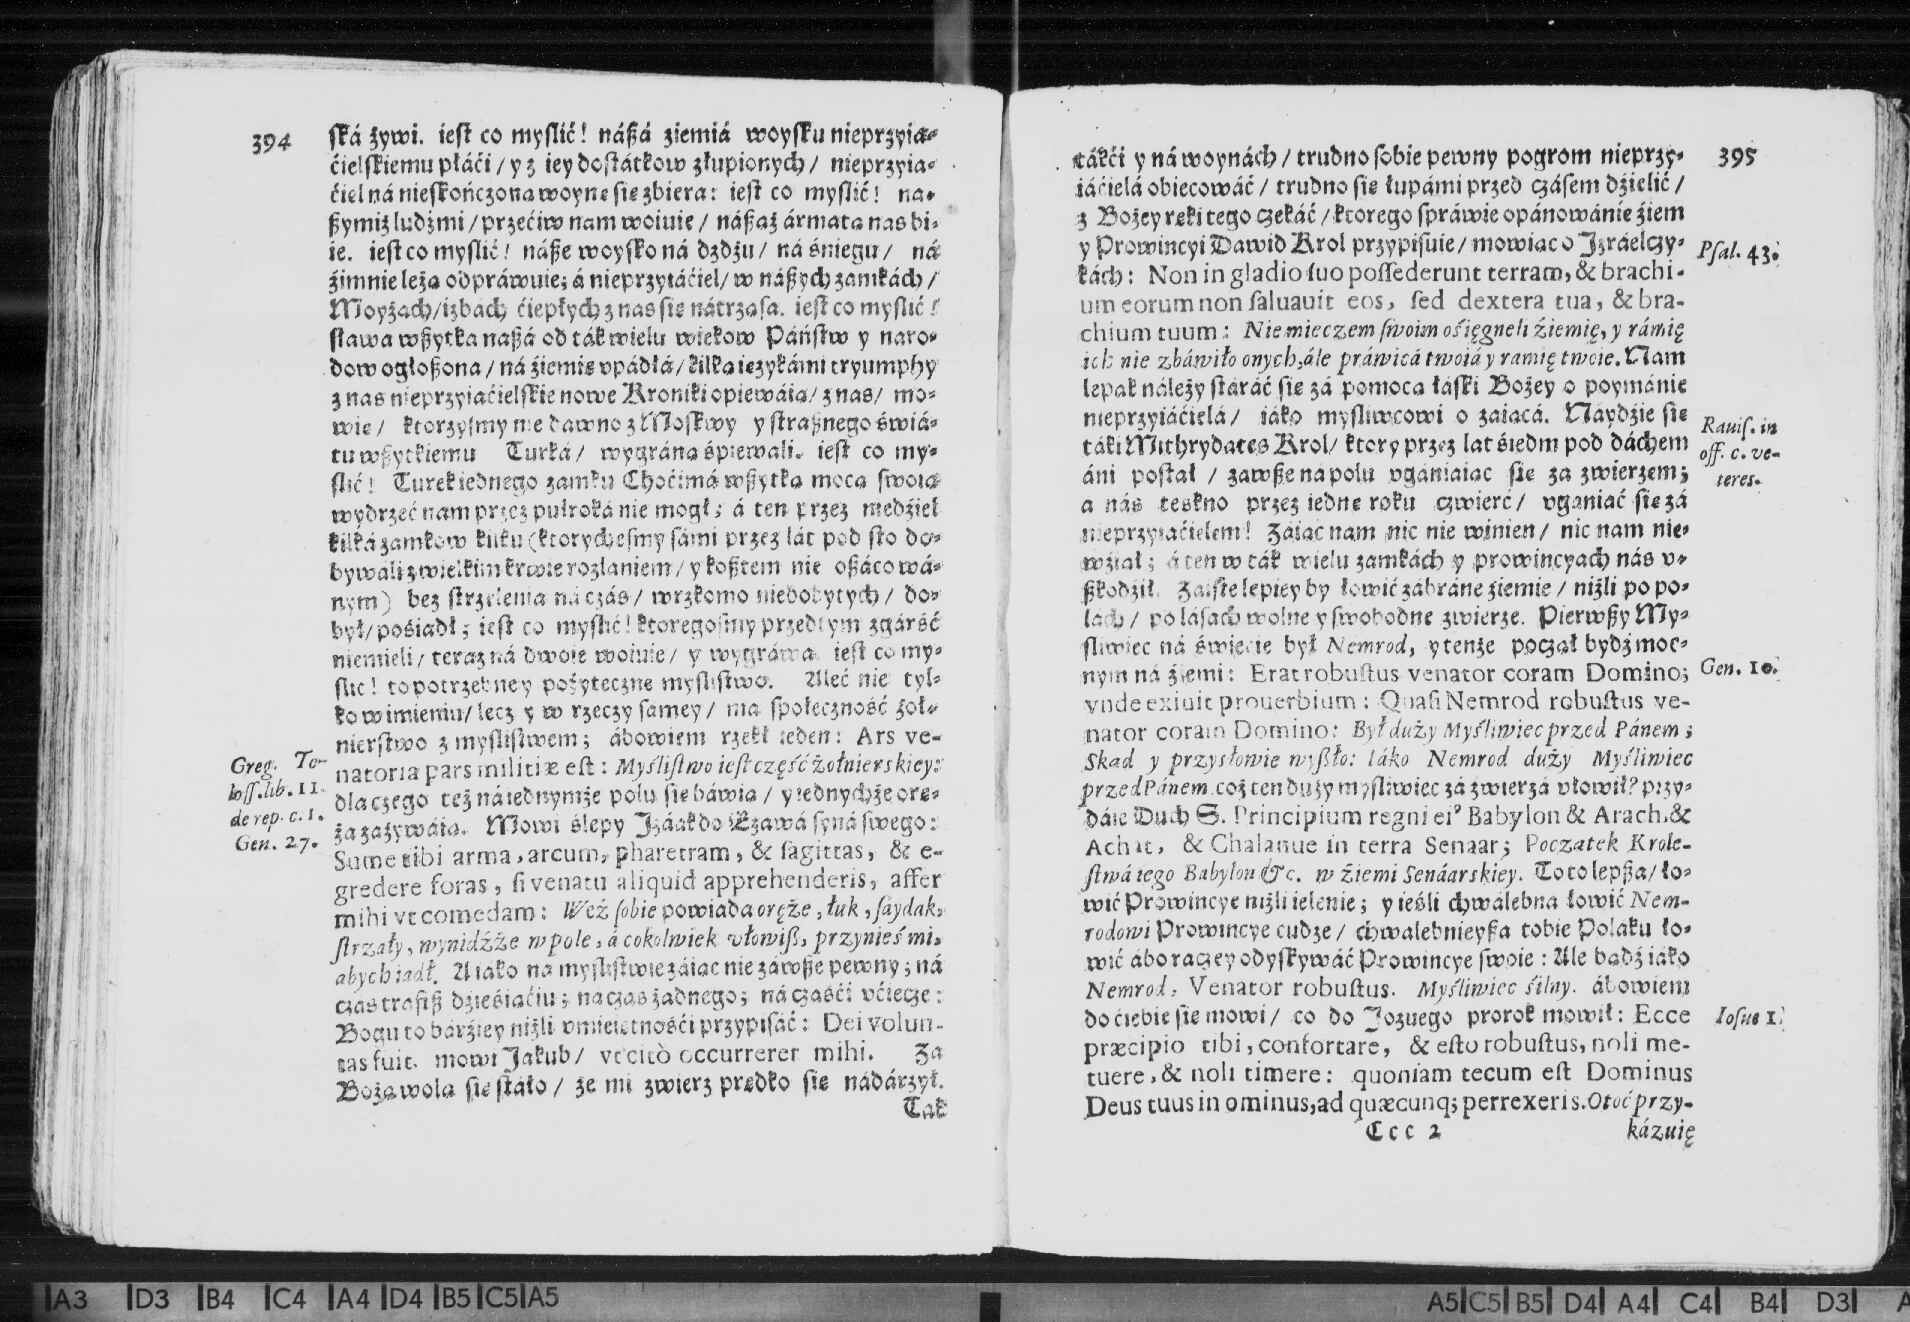 394
ská żywi. iest co myslić! nászá ziemiá woysku nieprzyia-
ćielskiemu płáći / y z iey dostátkow złupionych / nieprzyia-
ćiel ná nieskończoną woynę się zbiera: iest co myslić! na-
szymiż ludźmi / przećiw nam woiuie / nászaż ármata nas bi-
ie. iest co myslić! násze woysko ná dżdżu / ná śniegu / ná
źimnie leżą odpráwuie; á nieprzyiáćiel / w nászych zamkách /
Moyżách / izbach ćiepłych z nas się nátrząsa. iest co myslić!
sława wszytka naszá od ták wielu wiekow Páństw y naro-
dow ogłoszona / ná źiemię vpádłá / kilką ięzykámi tryumphy
z nas nieprzyiaćielskie nowe Kroniki opiewáią / z nas / mo-
wię / ktorzysmy nie dawno z Moskwy y strasznego świá-
tu wszytkiemu Turká / wygráną śpiewali. iest co my-
slić! Turek iednego zamku Choćimá wszytką mocą swoią
wydrzeć nam przez pułroká nie mogł; á ten przez niedźiel
kilká zamkow kilku (ktorychesmy sámi przez lát pod sto do-
bywáli z wielkim krwie rozlaniem / y kosztem nie oszácowá-
nym) bez strzelenia ná czás / wrzkomo niedobytych / do-
był / pośiadł; iest co myslić! ktoregosmy przedtym zgárść
niemieli / teraz ná dwoie woiuie / y wygráwa. iest co my-
slić! to potrzebne y pożyteczne myslistwo. Aleć nie tyl-
ko w imieniu / lecz y w rzeczy samey / ma społeczność żoł-
nierstwo z myslistwem; ábowiem rzekł ieden: Ars ve-
natoria pars militiæ est: Myślistwo iest część żołnierskiey:
dla czego też ná iednymże polu się báwią / y iednychże orę-
ża zażywáią. Mowi ślepy Jzáak do Ezawá syná swego:
Sume tibi arma, arcum, pharetram, & sagittas, & e-
gredere foras, si venatu aliquid apprehenderis, affer
mihi vt comedam: Weź sobie powiada oręże, łuk, saydak,
strzały, wynidźże w pole, á cokolwiek vłowisz, przynieś mi,
abych iadł. A iako na myslistwie záiąc nie záwsze pewny; ná
czas trafisz dźieśiąćiu; na czas żadnego; ná częśći vćiecze:
Bogu to bárźiey niżli vmieiętnośći przypisáć: Dei volun-
tas fuit. mowi Jakub / vt citò occurreret mihi. Zá
Bożą wolą się stáło / że mi zwierz prędko się nádárzył.
Tak
Greg. To-
loss. lib. 11.
de rep. c. 1.
Gen. 27.
395
tákći y ná woynách / trudno sobie pewny pogrom nieprzy-
iáćielá obiecowáć / trudno się łupámi przed czásem dźielić /
z Bożey ręki tego czekáć / ktorego spráwie opánowánie źiem
y Prowincyi Dawid Krol przypisuie / mowiąc o Jzráelczy-
kách: Non in gladio suo possederunt terram, & brachi-
um eorum non saluauit eos, sed dextera tua, & bra-
chium tuum: Nie mieczem swoim ośięgneli źiemię, y rámię
ich nie zbáwiło onych, ále práwicá twoiá y ramię twoie. Nam
lepak náleży stáráć się zá pomocą łáski Bożey o poymánie
nieprzyiáćielá / iáko mysliwcowi o zaiacá. Náydźie się
táki Mithrydates Krol / ktory przez lat śiedm pod dáchem
áni postał / zawsze na polu vganiaiac się za zwierzem;
a nás teskno przez iednę roku czwierć / vganiać się zá
nieprzyiaćielem! Záiąc nam nic nie winien / nic nam nie-
wźiał; á ten w ták wielu zamkách y prowincyach nás v-
szkodźił. Záiste lepiey by łowić zábráne źiemie / niżli po po-
lách / po lásach wolne y swobodne zwierze. Pierwszy My-
sliwiec ná świecie był Nemrod, y tenże począł bydź moc-
nym ná źiemi: Erat robustus venator coram Domino;
vnde exiuit prouerbium: Quasi Nemrod robustus ve-
nator coram Domino: Był duży Myśliwiec przed Pánem;
Skąd y przysłowie wyszło: Iáko Nemrod duży Myśliwiec
przed Pánem. coż ten duży mysliwiec zá zwierzá vłowił? przy-
dáie Duch S. Principium regni eiꝰ Babylon & Arach, &
Achat, & Chalanne in terra Senaar; Początek Krole-
stwá iego Babylon &c. w źiemi Senáarskiey. To to lepsza / ło-
wić Prowincye niżli ielenie; y ieśli chwálebna łowić Nem-
rodowi Prowincye cudze / chwalebnieysza tobie Polaku ło-
wić ábo raczey odyskywáć Prowincye swoie: Ale bądź iáko
Nemrod, Venator robustus. Myśliwiec śilny. ábowiem
do ćiebie się mowi / co do Jozuego prorok mowił: Ecce
præcipio tibi, confortare, & esto robustus, noli me-
tuere, & noli timere: quoniam tecum est Dominus
Deus tuus in ominus, ad quæcunq; perrexeris. Otoć przy-
Ccc 2
kázuię
Psal. 43.
Rauis. in
off. c. ve-
teres.
Gen. 10.
Iosue 1.
A3 D3 B4 C4 A4 D4 B5 C5 A5
A5 C5 B5 D4 A4 C4 B4 D3